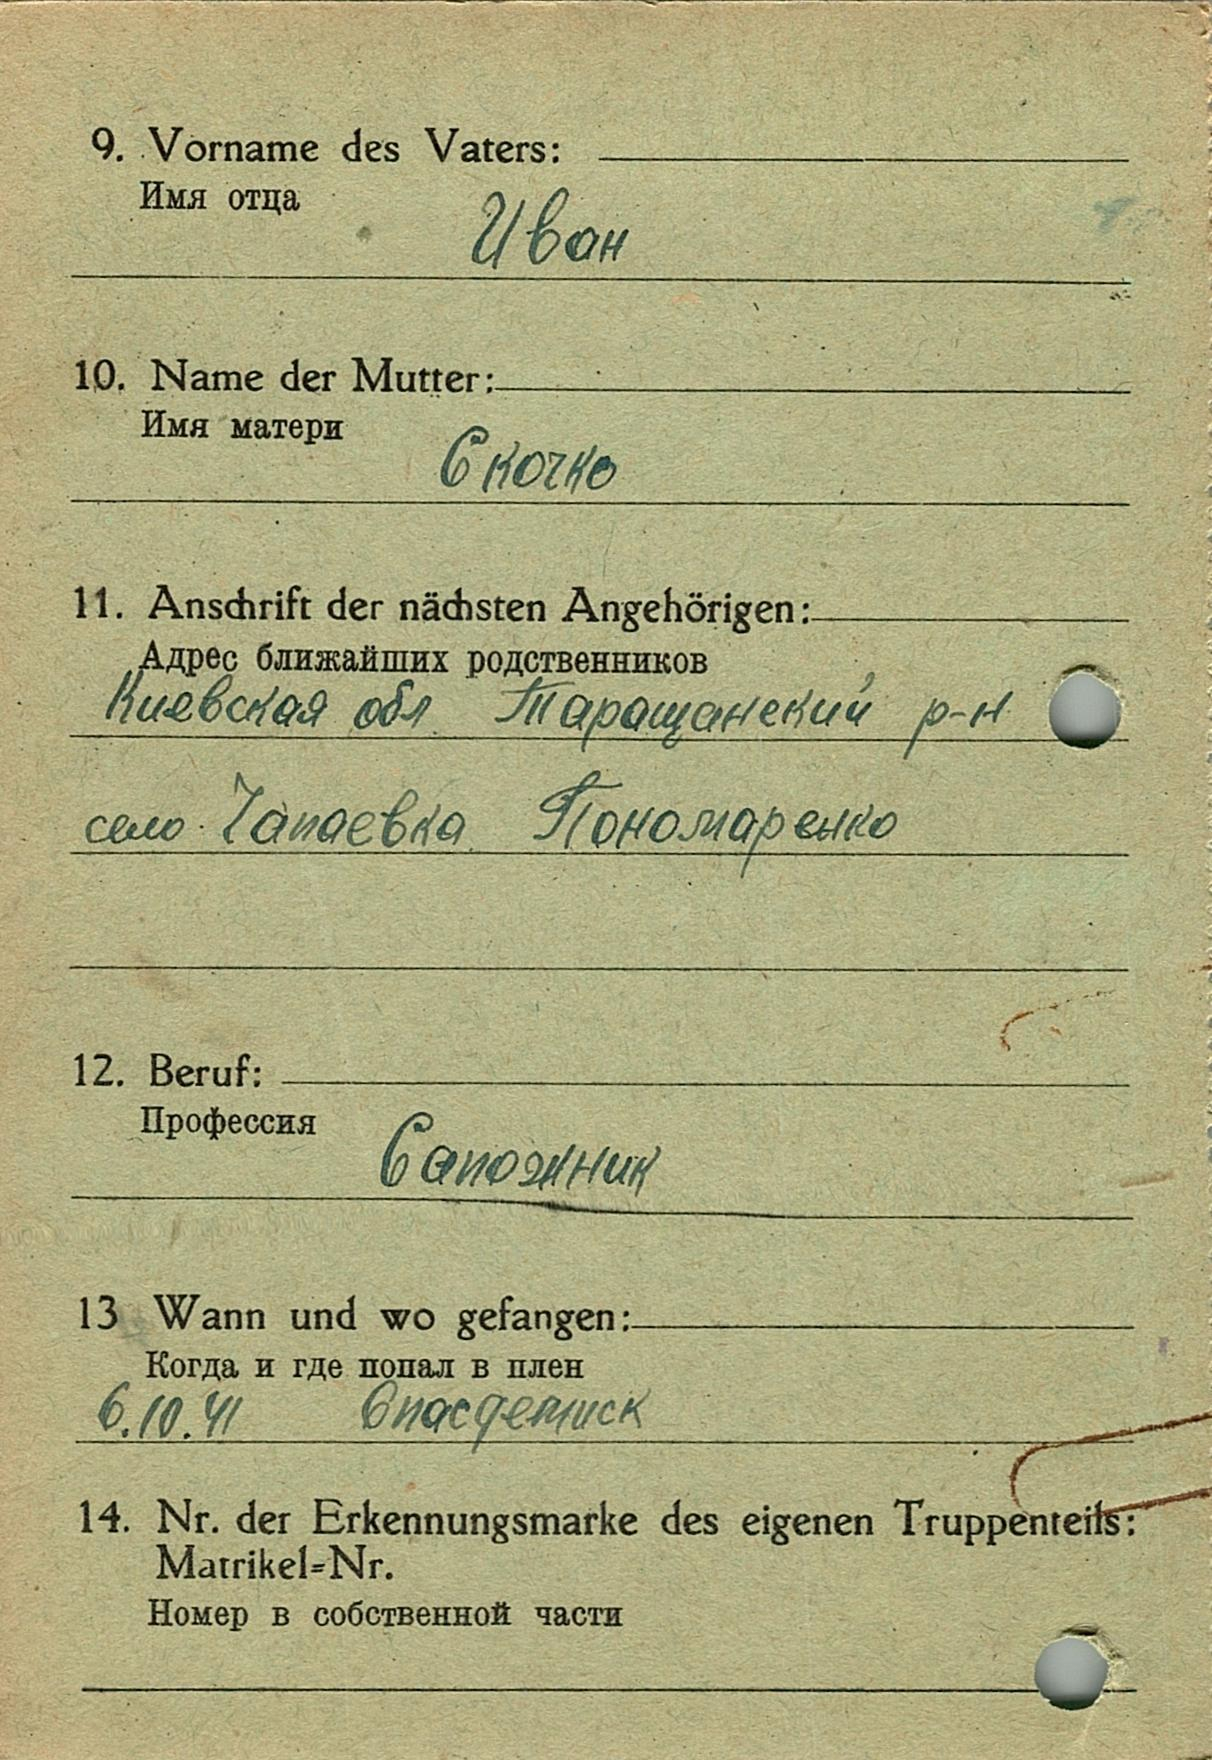 9. Vorname des Vaters:
Имя отца
Иван
10. Name der Mutter:
Имя матери
Скочко
11. Anschrift der nächsten Angehörigen:
Адрес ближайших родственников
Киевская обл Таращанский р-н
село Чапаевка Пономаренко
12. Beruf:
Профессия
Сапожник
13 Wann und wo gefangen:
Когда и где попал в плен
6.10.41 Спасдемиск
14. Nr. der Erkennungsmarke des eigenen Truppenteils:
Matrikel=Nr.
Номер в собственной части